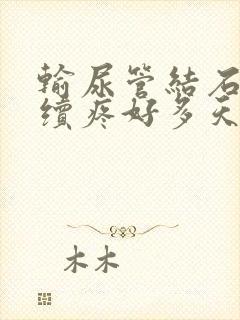 輸尿管結石
續疼好多天
木木